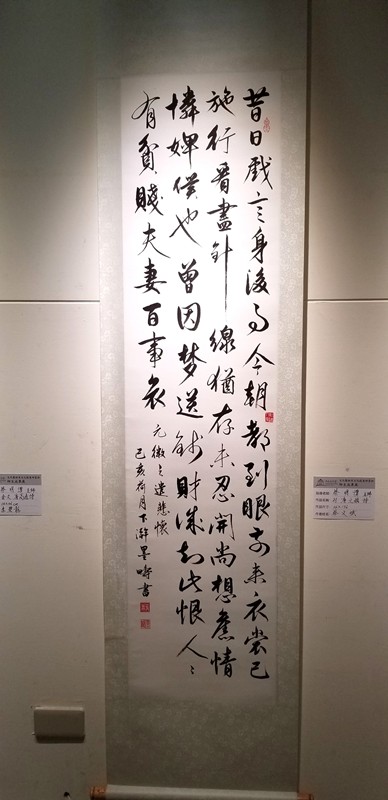 昔日戲言身後事今朝都到眼前來衣裳已
施行看盡針線猶存未忍開尚想舊情
憐婢僕也曾因梦送錢財誠知此恨人々
有貧賤夫妻百事哀
元微之遣悲懷
己亥荷月下澣墨書